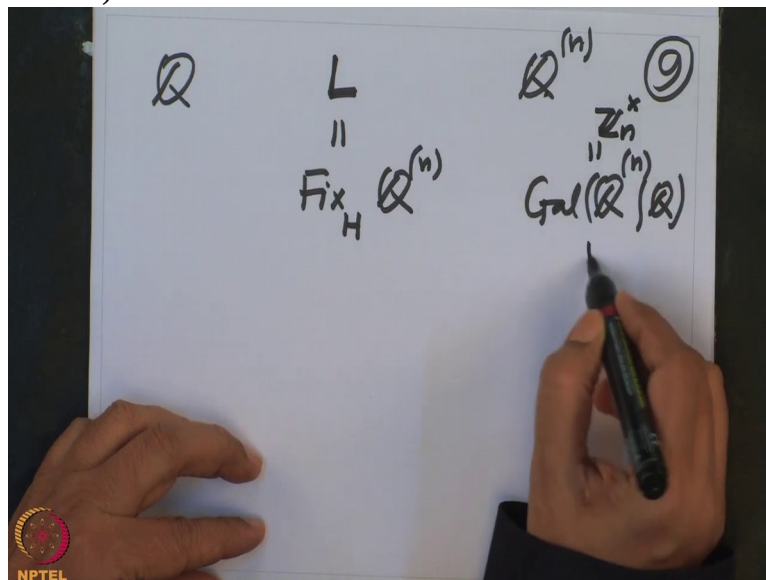 ℚ L ℚ^(n) ⑨
ℤ_n^×
= =
Fix_H ℚ^(n) Gal(ℚ^(n)|ℚ)
NPTEL